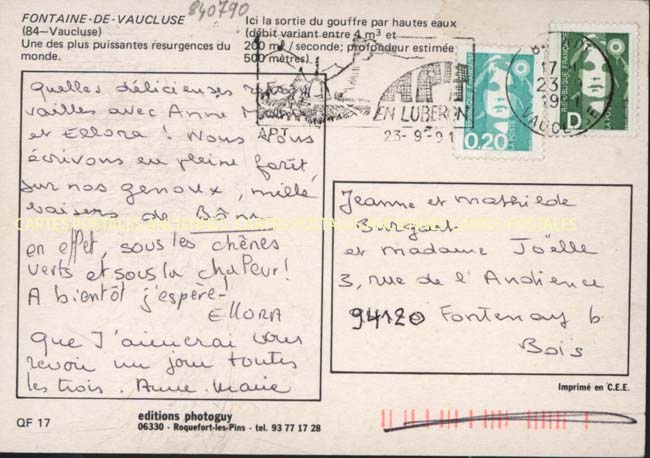 840790
FONTAINE-DE-VAUCLUSE
(84—Vaucluse)
Une des plus puissantes resurgences du
monde.
Ici la sortie du gouffre par hautes eaux
(débit variant entre 4 m³ et
200 m³ / seconde; profondeur estimée
500 mètres).
APT
EN LUBERON
23-9-91
REPUBLIQUE FRANÇAISE
LA POSTE
0,20
REPUBLIQUE FRANÇAISE
LA POSTE
D
17
23
VAUCLUSE
Quelles délicieuses
vailles avec Anne
et Ellora ! Nous vous
écrivons en pleine forêt,
sur nos genoux, mille
baisers de
en effet, sous les chênes
verts et sous la chaleur!
A bientôt j'espère-!
ELLORA
que J'aimerai vous
revoir un jour toutes
les trois. Anne-Marie
Jeanne et Mathilde
et madame Joëlle
3, rue de l'Audience
94120 Fontenay b
Bois
CARTES POSTALES ANCIENNES
Imprimé en C.E.E.
QF 17
editions photoguy
06330 - Roquefort-les-Pins - tel. 93 77 17 28